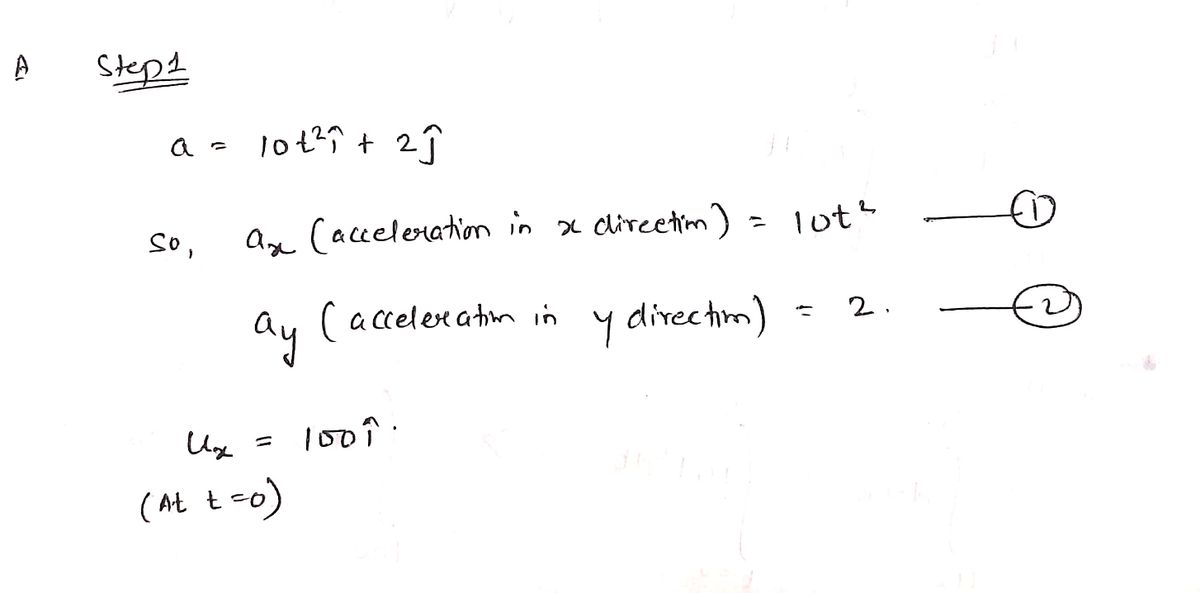 A Step 1
a = 10t²î + 2ĵ
So, aₓ (acceleration in x direction) = 10t² —— ①
a_y (acceleration in y direction) = 2. —— ②
uₓ = 100î.
(At t=0)